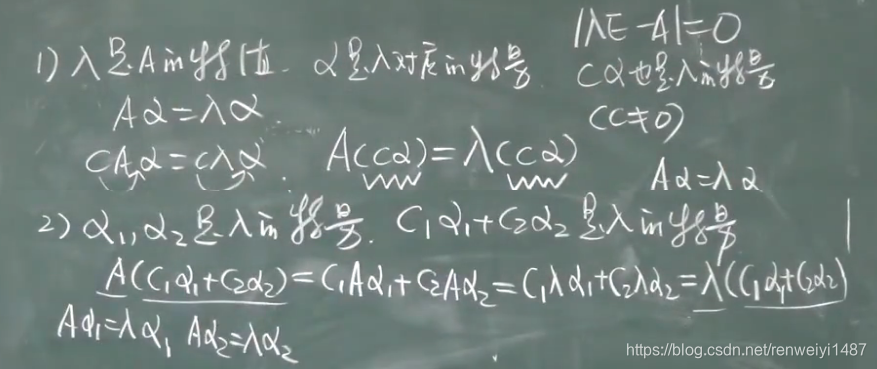 |λE-A|=0
1) λ是A的特征值. α是λ对应的特征向量. Cα也是λ的特征向量
Aα=λα. (C≠0)
CAα=Cλα. A(Cα)=λ(Cα)
Aα=λα
2) α₁,α₂是λ的特征向量. C₁α₁+C₂α₂是λ的特征向量
A(C₁α₁+C₂α₂)=C₁Aα₁+C₂Aα₂=C₁λα₁+C₂λα₂=λ(C₁α₁+C₂α₂)
Aα₁=λα₁ Aα₂=λα₂
https://blog.csdn.net/renweiyi1487